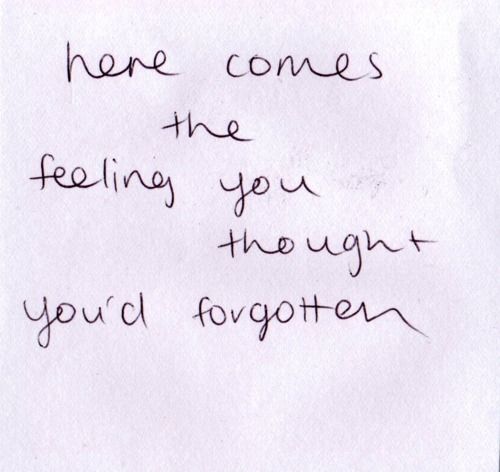 here comes
the
feeling you
thought
you'd forgotten